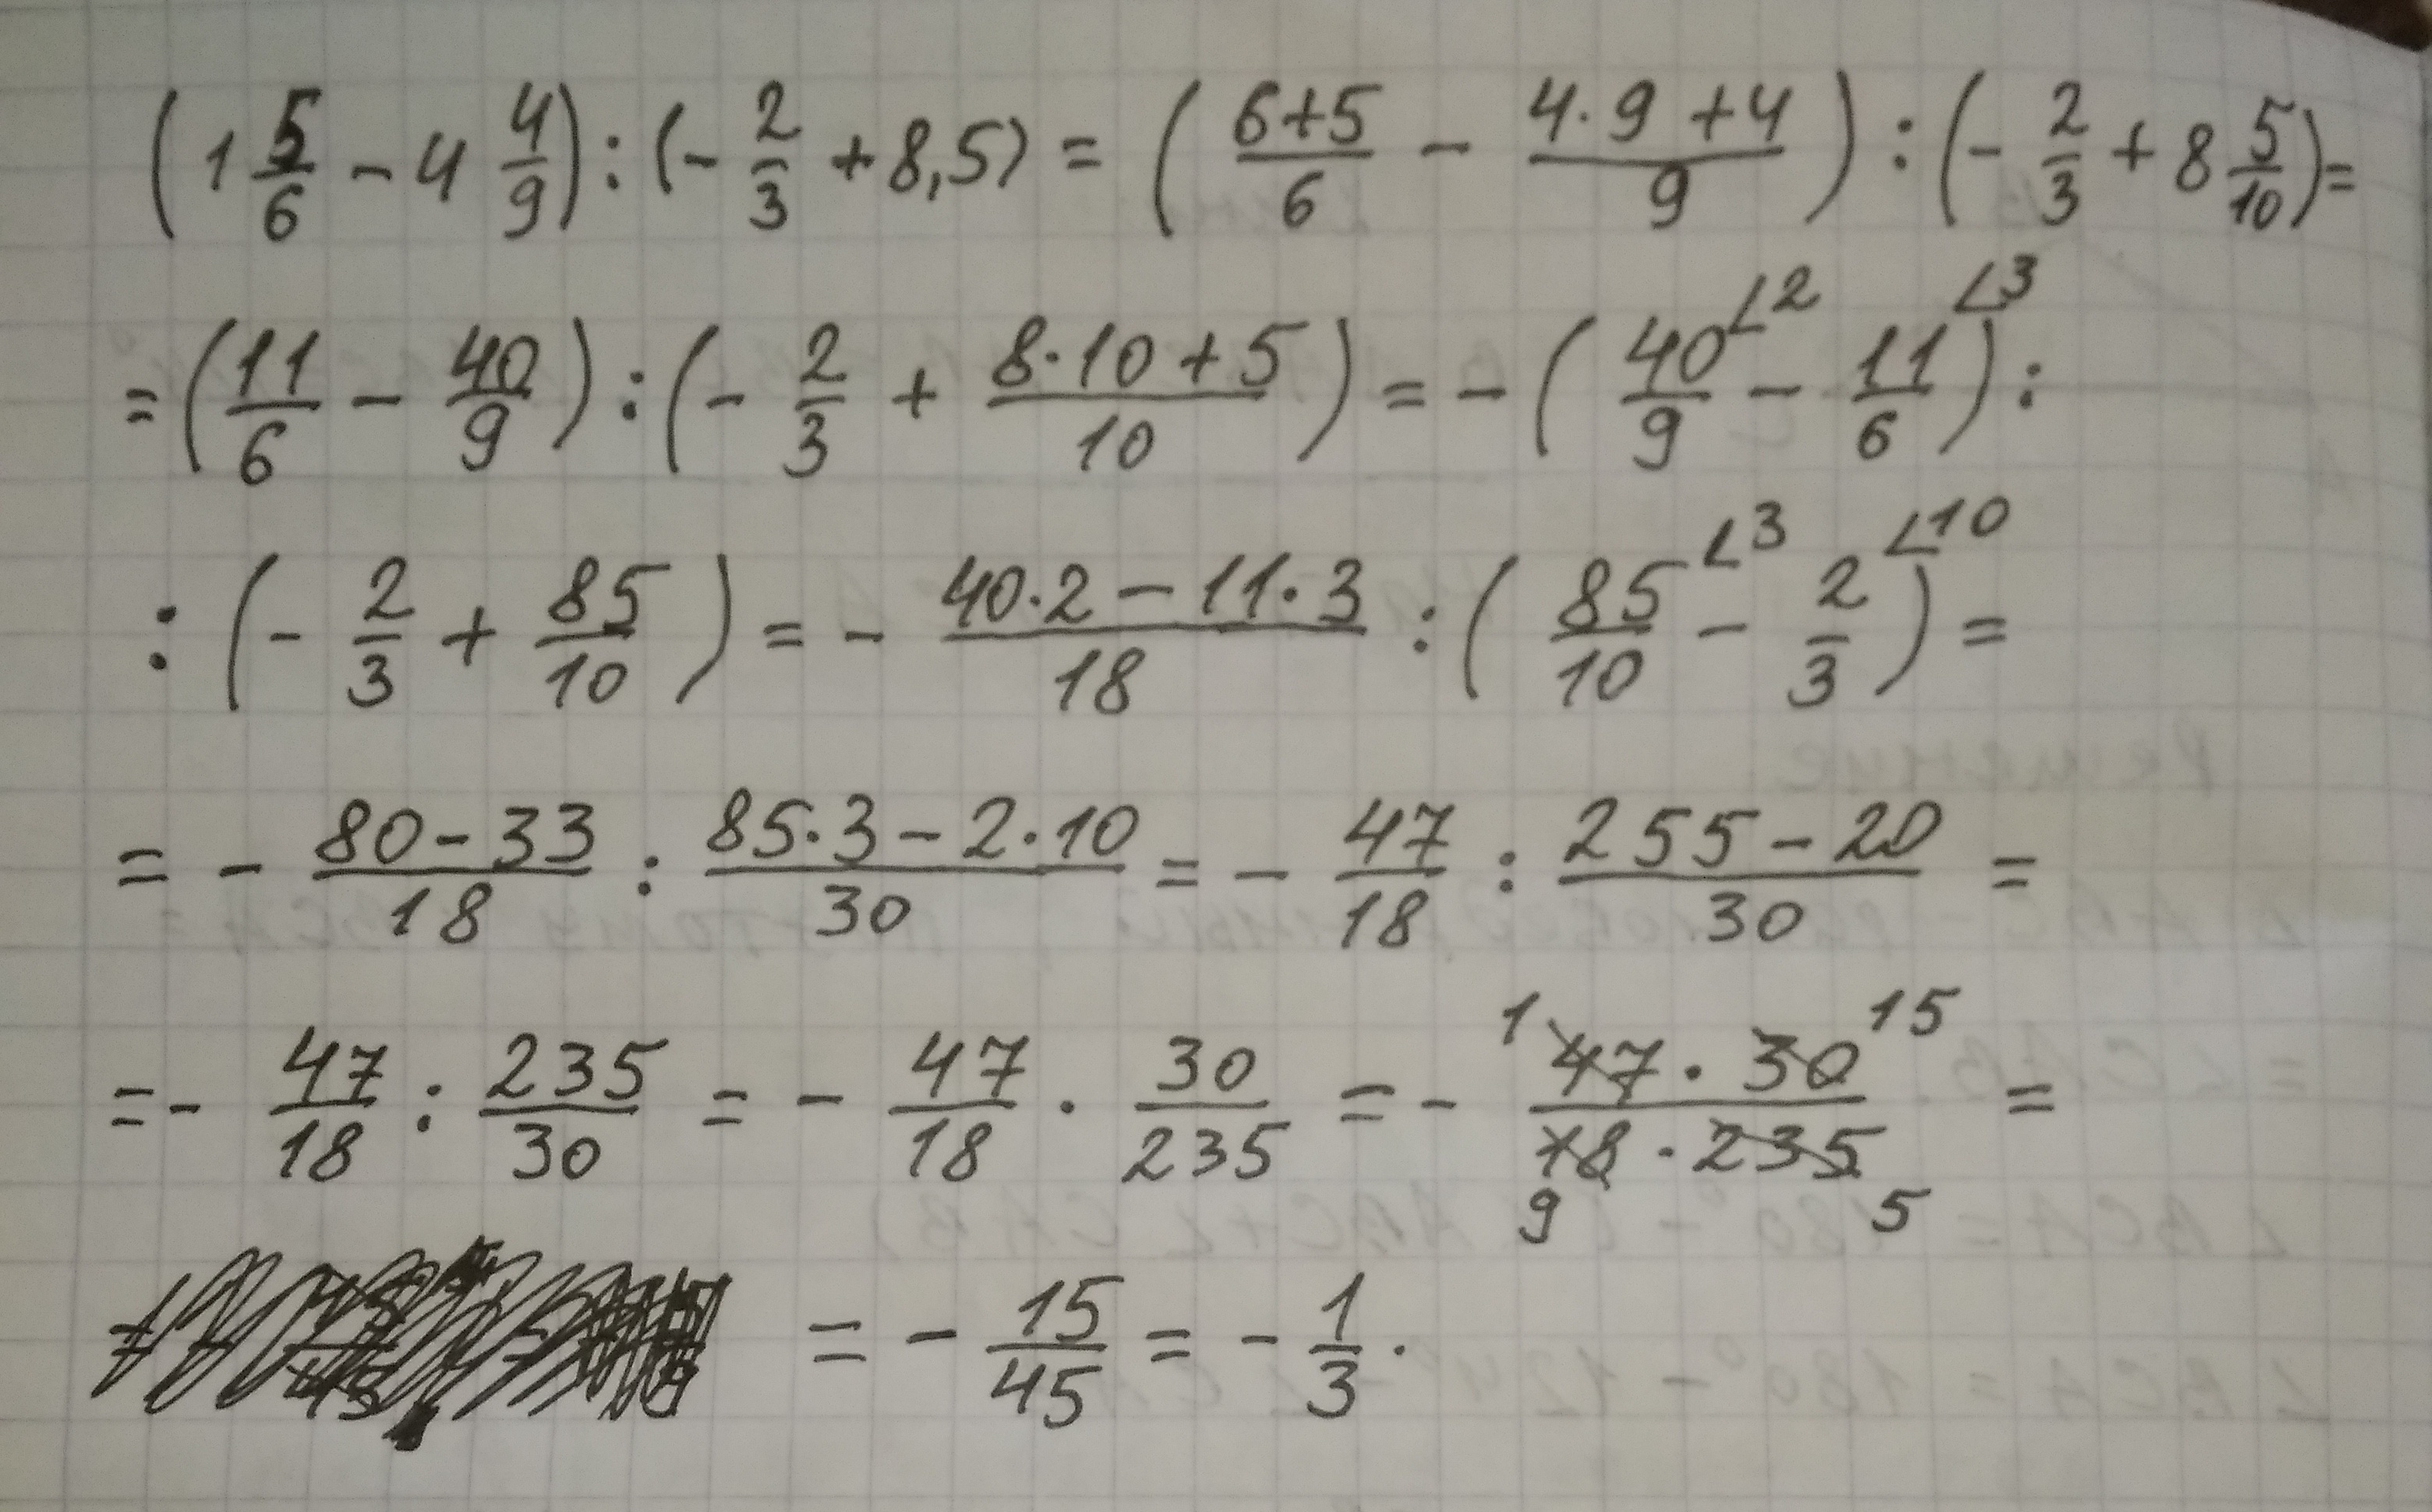 (1 5/6 - 4 4/9) : (- 2/3 + 8,5) = ( (6+5)/6 - (4·9+4)/9 ) : (- 2/3 + 8 5/10) =
= (11/6 - 40/9) : (- 2/3 + (8·10+5)/10) = - (40/9 ∠2 - 11/6 ∠3) :
: (- 2/3 + 85/10) = - (40·2-11·3)/18 : (85/10 ∠3 - 2/3 ∠10) =
= - (80-33)/18 : (85·3-2·10)/30 = - 47/18 : (255-20)/30 =
= - 47/18 : 235/30 = - 47/18 · 30/235 = - (1 47 · 30 15)/(9 18 · 235 5) =
= - 15/45 = - 1/3 .